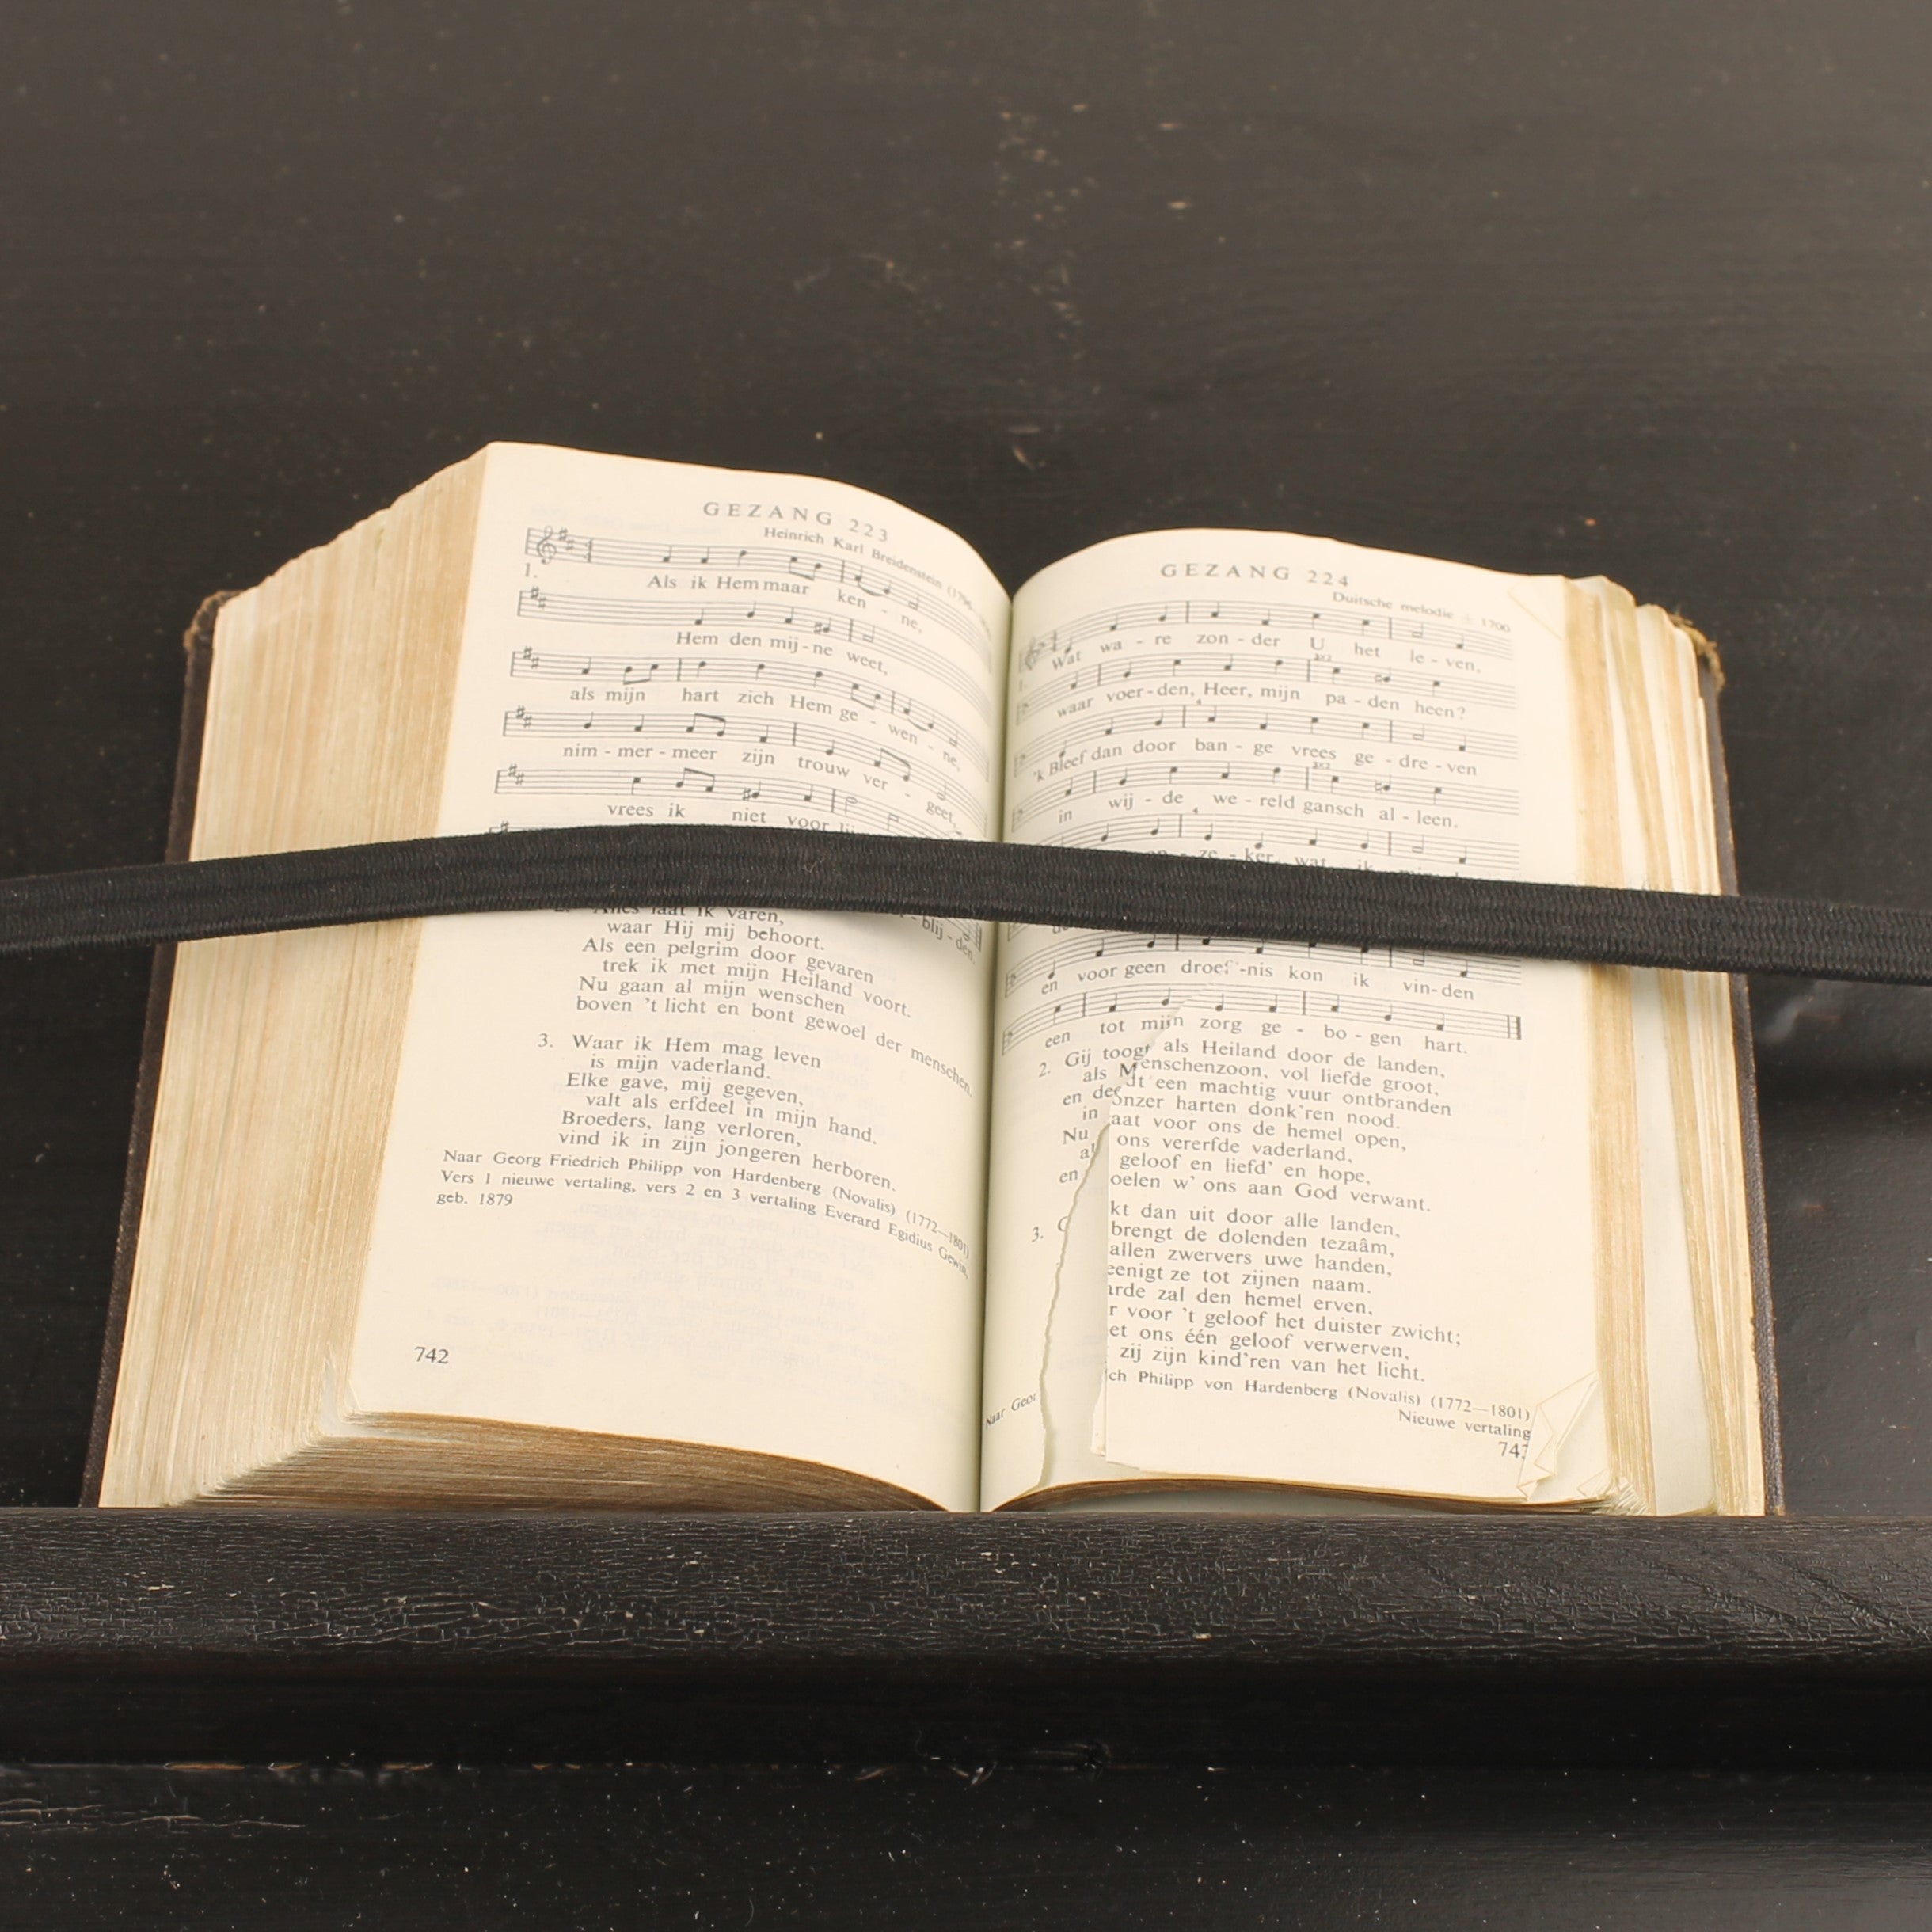 GEZANG 223
Heinrich Karl Breidenstein
1.
Als ik Hem maar ken - ne,
Hem den mij - ne weet,
als mijn hart zich Hem ge - wen - ne,
nim - mer - meer zijn trouw ver - geet,
vrees ik niet voor
- blij - den.
2. Alles laat ik varen,
waar Hij mij behoort.
Als een pelgrim door gevaren
trek ik met mijn Heiland voort.
Nu gaan al mijn wenschen
boven 't licht en bont gewoel der menschen.
3. Waar ik Hem mag leven
is mijn vaderland.
Elke gave, mij gegeven,
valt als erfdeel in mijn hand.
Broeders, lang verloren,
vind ik in zijn jongeren herboren.
Naar Georg Friedrich Philipp von Hardenberg (Novalis) (1772—1801)
Vers 1 nieuwe vertaling, vers 2 en 3 vertaling Everard Egidius Gewin,
geb. 1879
742
GEZANG 224
Duitsche melodie ± 1700
1.
Wat wa - re zon - der U het le - ven,
waar voer - den, Heer, mijn pa - den heen?
'k Bleef dan door ban - ge vrees ge - dre - ven
in wij - de we - reld gansch al - leen.
- ze - ker, wat ik
en voor geen droef - nis kon ik vin - den
een tot mijn zorg ge - bo - gen hart.
2. Gij toogt als Heiland door de landen,
als Menschenzoon, vol liefde groot,
en deedt een machtig vuur ontbranden
in onzer harten donk'ren nood.
Nu aat voor ons de hemel open,
al ons vererfde vaderland,
en geloof en liefd' en hope,
oelen w' ons aan God verwant.
3. G kt dan uit door alle landen,
brengt de dolenden tezaâm,
allen zwervers uwe handen,
eenigt ze tot zijnen naam.
arde zal den hemel erven,
r voor 't geloof het duister zwicht;
et ons één geloof verwerven,
zij zijn kind'ren van het licht.
Naar Geor ich Philipp von Hardenberg (Novalis) (1772—1801)
Nieuwe vertaling
743